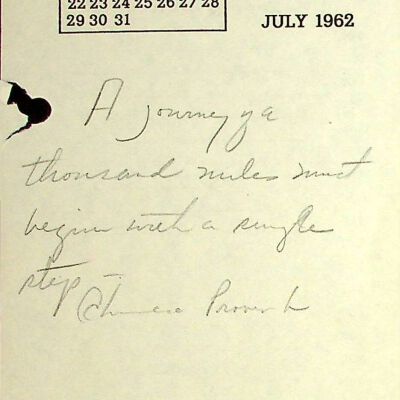 22 23 24 25 26 27 28
29 30 31
JULY 1962
A journey of a
thousand miles must
begin with a single
step —
Chinese Proverb